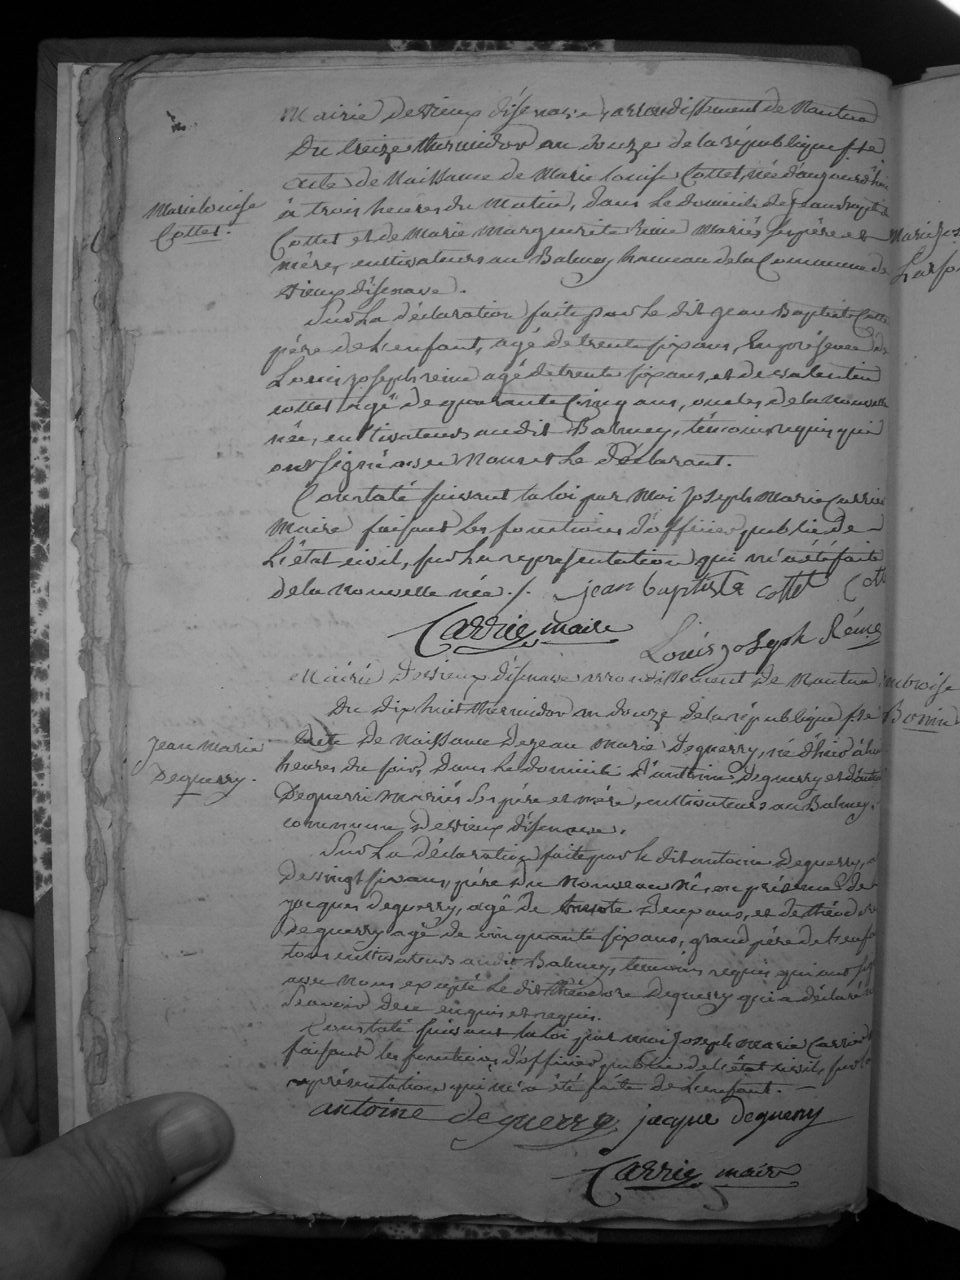 Mairie de Vieux d'isenave arrondissement de Nantua
Du treize thermidor an douze de la république f.se
Marie louise
Cottet.
acte de Naissance de Marie louise Cottet, née d'aujourd'hui
à trois heures du Matin, dans le domicile de jean baptiste
Cottet et de Marie Marguerite reine Mariés ses père et
mère, cultivateurs au Balmey hameau de la Commune de
Vieux d'isenave.
Sur la déclaration faite par le dit jean Baptiste Cottet
père de l'enfant, agé de trente six ans, En présence de
Louis joseph reine agé de trente six ans, et de valentin
cottet agé de quarante Cinq ans, oncles de la nouvelle
née, cultivateurs au dit Balmey, témoins requis qui
ont signé avec Nous et le déclarant.
Constaté suivant la loi par Moi joseph Marie Carrier
Maire faisant les fonctions d'officier public de
L'état civil, sur la représentation qui m'a été faite
de la nouvelle née ./. jean baptiste cottet Cott
Carrier maire
Louis joseph Réine
Mairie de Vieux d'isenave arrondissement de Nantua
Du dix huit thermidor an douze de la république f.se
Jean Marie
Deguerry.
Acte de naissance de jean Marie Deguerry, né d'hier à huit
heures du soir, dans le domicile d'antoine Deguerry et
Deguerri Mariés ses père et mère, cultivateurs au Balmey,
commune de Vieux d'isenave.
Sur la déclaration faite par le dit antoine Deguerry,
de vingt six ans, père du Nouveau Né, en présence de
jacques Deguerry, agé de trente deux ans, et de théodore
Deguerry agé de cinquante six ans, grand père de l'enfant
tous cultivateurs au dit Balmey, témoins requis qui ont
avec Nous excepté le dit théodore Deguerry qui a déclaré
savoir de ce enquis et requis.
Constaté suivant la loi par moi joseph marie Carrier
faisant les fonctions d'officier public de l'état civil, sur la
représentation qui m'a été faite de l'enfant. —
antoine deguerry jacque Deguerry
Carrier maire
Marie jos
ambroise
Bonin